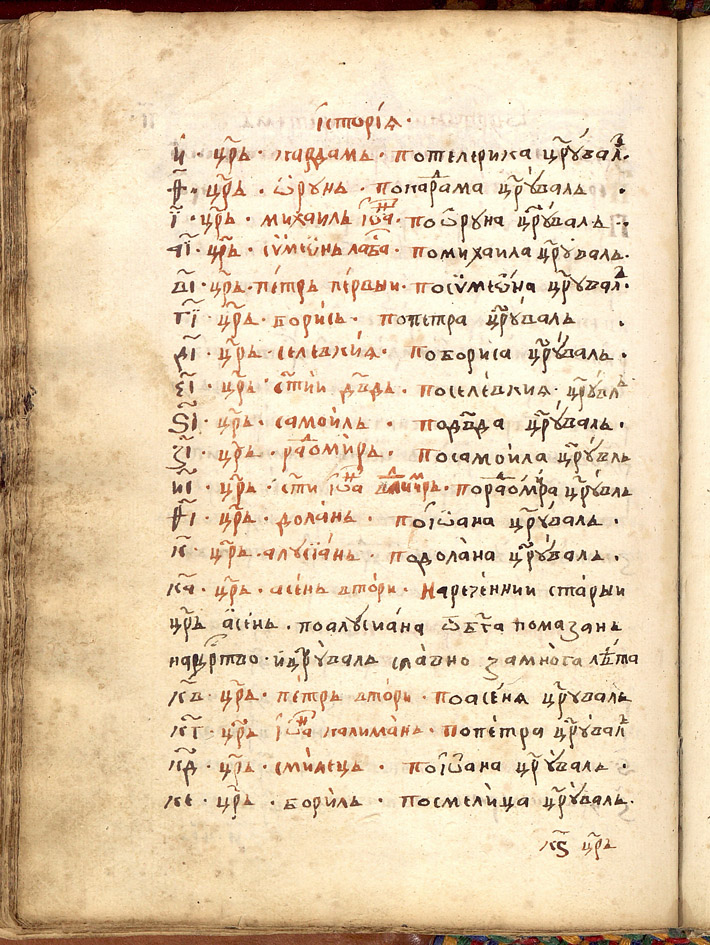 їсторїѧ ·
и҃ · цр҃ь · кардамь · потелерика цр҃ꙋвал̾ ·
ѳ҃ · цр҃ь · ѡрꙋнь · покардⷨама цр҃ꙋваль ·
і҃ · цр҃ь · михаиль їѡⷩ҇а · поѡрꙋна цр҃ꙋваль ·
аі҃ · цр҃ь · сѷмеѡнь лабⷭ҇а · помихаила цр҃ꙋваль ·
ві҃ · цр҃ь · петрь первыи · посѷмеѡна цр҃ꙋвал̾ ·
гі҃ · цр҃ь · борись · попетра цр҃ꙋваль ·
ді҃ · цр҃ь · селевкиѧ · побориса цр҃ꙋваль ·
еі҃ · цр҃ь · ст҃їи дв҃дь · поселевкиѧ · цр҃ꙋвль
ѕі҃ · цр҃ь · самоиль · подв҃да цр҃ꙋваль ·
зі҃ · цр҃ь · раⷣомирь · посамоила цр҃ꙋвль
иі҃ · цр҃ь · ст҃и їѡⷩ҇а влаⷣимⷨирь · пораⷣомира цр҃ꙋвль
ѳі҃ · цр҃ь · долань · поїѡана цр҃ꙋваль ·
к҃ · цр҃ь · алꙋсїань · подолана цр҃ꙋваль ·
ка҃ · цр҃ь · асень втори · нареченнии старыи
цр҃ь асень · поалꙋсиана ѿбг҃а помазань
нацрⷭ҇тво · ицр҃ꙋваль славно замнога лѣта
кв҃ · цр҃ь · петрь втори · поасенѧ цр҃ꙋваль
кг҃ · цр҃ь · їѡⷩ҇а калимань · попетра цр҃ꙋвал̾
кд҃ · цр҃ь · смилець · поїѡана цр҃ꙋваль ·
ке · цр҃ь · бориль · посмелица цр҃ꙋваль ·
кѕ҃ цр҃ь